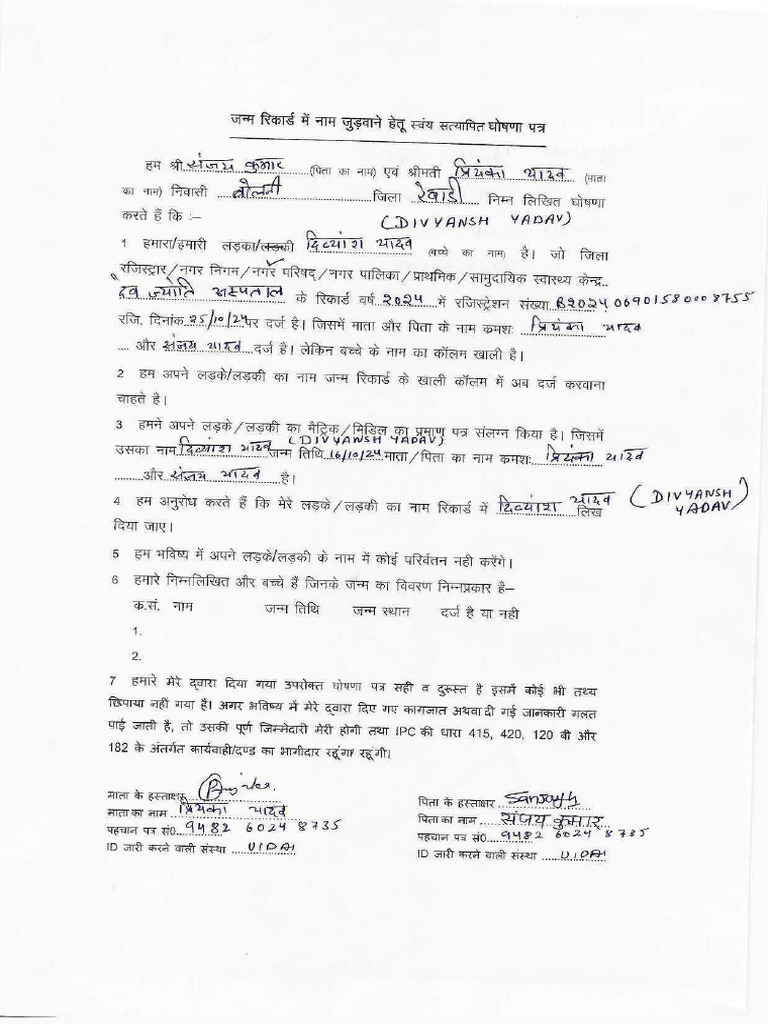 जन्म रिकार्ड में नाम जुड़वाने हेतू स्वंय सत्यापित घोषणा पत्र
हम श्री संजय कुमार (पिता का नाम) एवं श्रीमती प्रियंका यादव (माता
का नाम) निवासी बोलनी जिला रेवाडी निम्न लिखित घोषणा
करते हैं कि :–
(DIVYANSH YADAV)
1 हमारा/हमारी लड़का/लड़की दिव्यांश यादव (बच्चे का नाम) है। जो जिला
रजिस्ट्रार/नगर निगम/नगर परिषद्/नगर पालिका/प्राथमिक/सामुदायिक स्वास्थ्य केन्द्र..
देव ज्योति अस्पताल के रिकार्ड वर्ष 2024 में रजिस्ट्रेशन संख्या B202406901580008755
रजि. दिनांक 25/10/24 पर दर्ज है। जिसमें माता और पिता के नाम कमशः प्रियंका यादव
.... और संजय यादव दर्ज है। लेकिन बच्चे के नाम का कॉलम खाली है।
2 हम अपने लड़के/लड़की का नाम जन्म रिकार्ड के खाली कॉलम में अब दर्ज करवाना
चाहते है।
3 हमने अपने लड़के/लड़की का मैट्रिक/मिडिल का प्रमाण पत्र संलग्न किया है। जिसमें
(DIVYANSH YADAV)
उसका नाम दिव्यांश यादव जन्म तिथि 16/10/24 माता/पिता का नाम कमशः प्रियंका यादव
........और संजय यादव है।
4 हम अनुरोध करते हैं कि मेरे लड़के/लड़की का नाम रिकार्ड में दिव्यांश यादव लिख (DIVYANSH YADAV)
दिया जाए।
5 हम भविष्य में अपने लड़के/लड़की के नाम में कोई परिर्वतन नही करेंगे।
6 हमारे निम्नलिखित और बच्चे हैं जिनके जन्म का विवरण निम्नप्रकार है–
क.सं. नाम जन्म तिथि जन्म स्थान दर्ज है या नही
1.
2.
7 हमारे मेरे द्वारा दिया गया उपरोक्त घोषणा पत्र सही व दुरूस्त है इसमें कोई भी तथ्य
छिपाया नहीं गया है। अगर भविष्य में मेरे द्वारा दिए गए कागजात अथवा दी गई जानकारी गलत
पाई जाती है, तो उसकी पूर्ण जिम्मेदारी मेरी होगी तथा IPC की धारा 415, 420, 120 बी और
182 के अंतर्गत कार्यवाही/दण्ड का भागीदार रहूंगा/ रहूंगी।
माता के हस्ताक्षर
माता का नाम प्रियंका यादव
पहचान पत्र सं0 9482 6024 8735
ID जारी करने वाली संस्था UIDAI
पिता के हस्ताक्षर Sanjay k
पिता का नाम संजय कुमार
पहचान पत्र सं0 9482 6024 8735
ID जारी करने वाली संस्था UIDAI